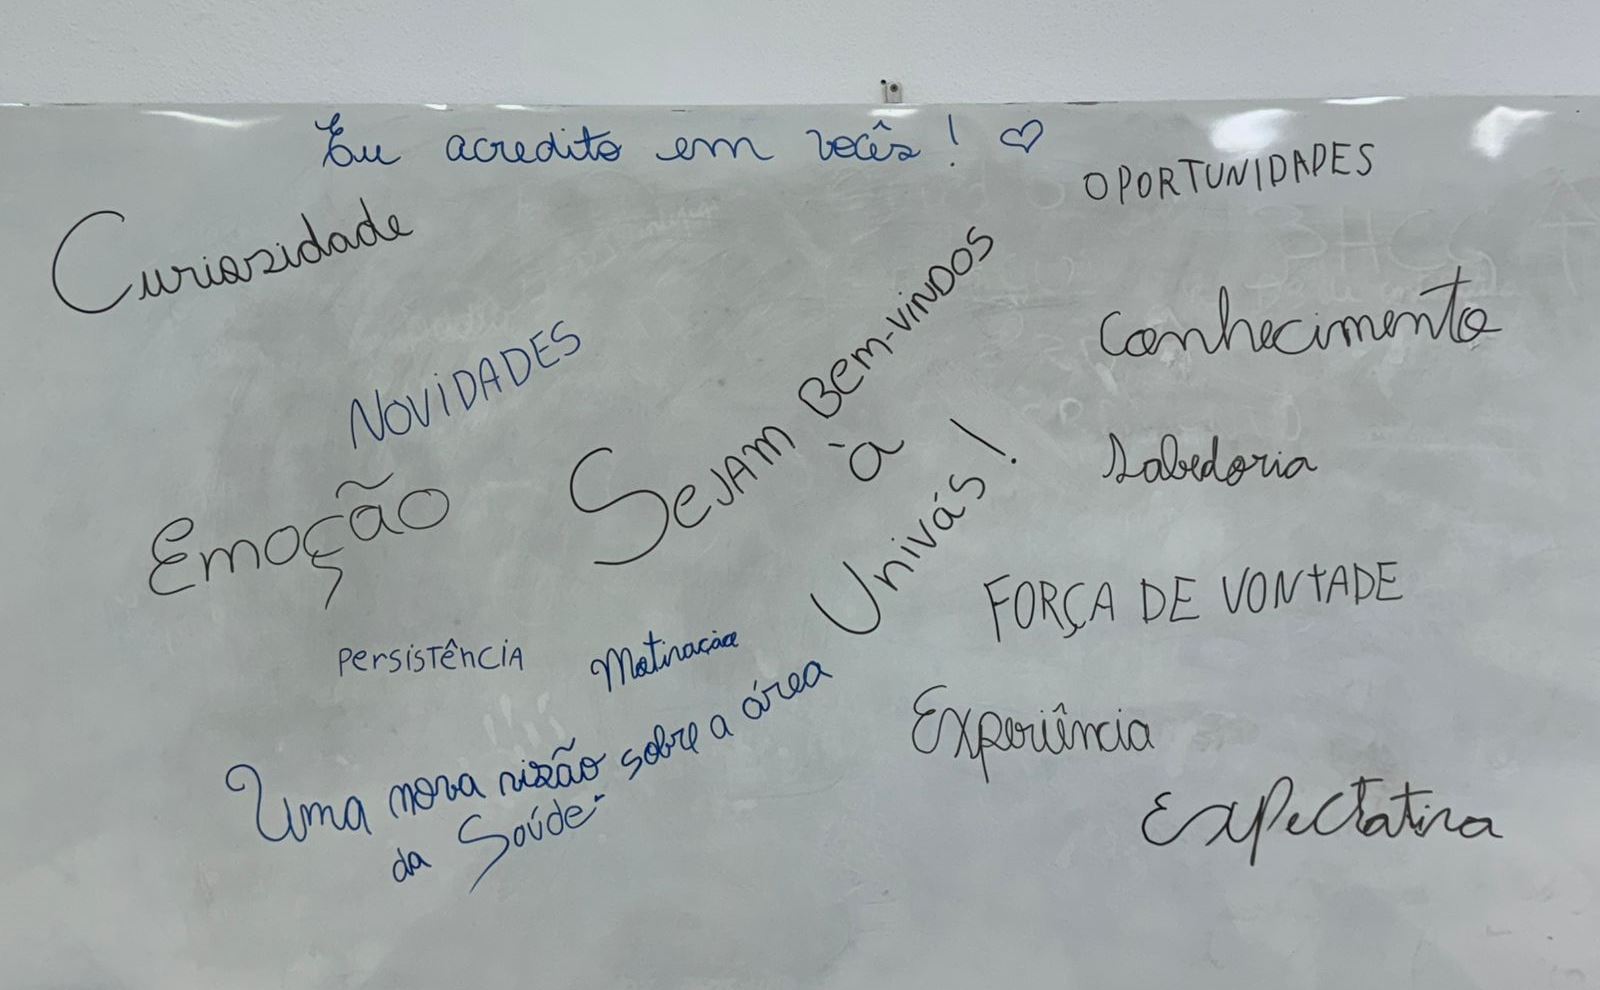 Eu acredito em vocês! ♡
OPORTUNIDADES
Curiosidade
NOVIDADES
Sejam Bem-vindos
à
Univás!
Conhecimento
Sabedoria
Emoção
FORÇA DE VONTADE
Persistência
Motivação
Uma nova visão sobre a área
da Saúde
Experiência
Expectativa